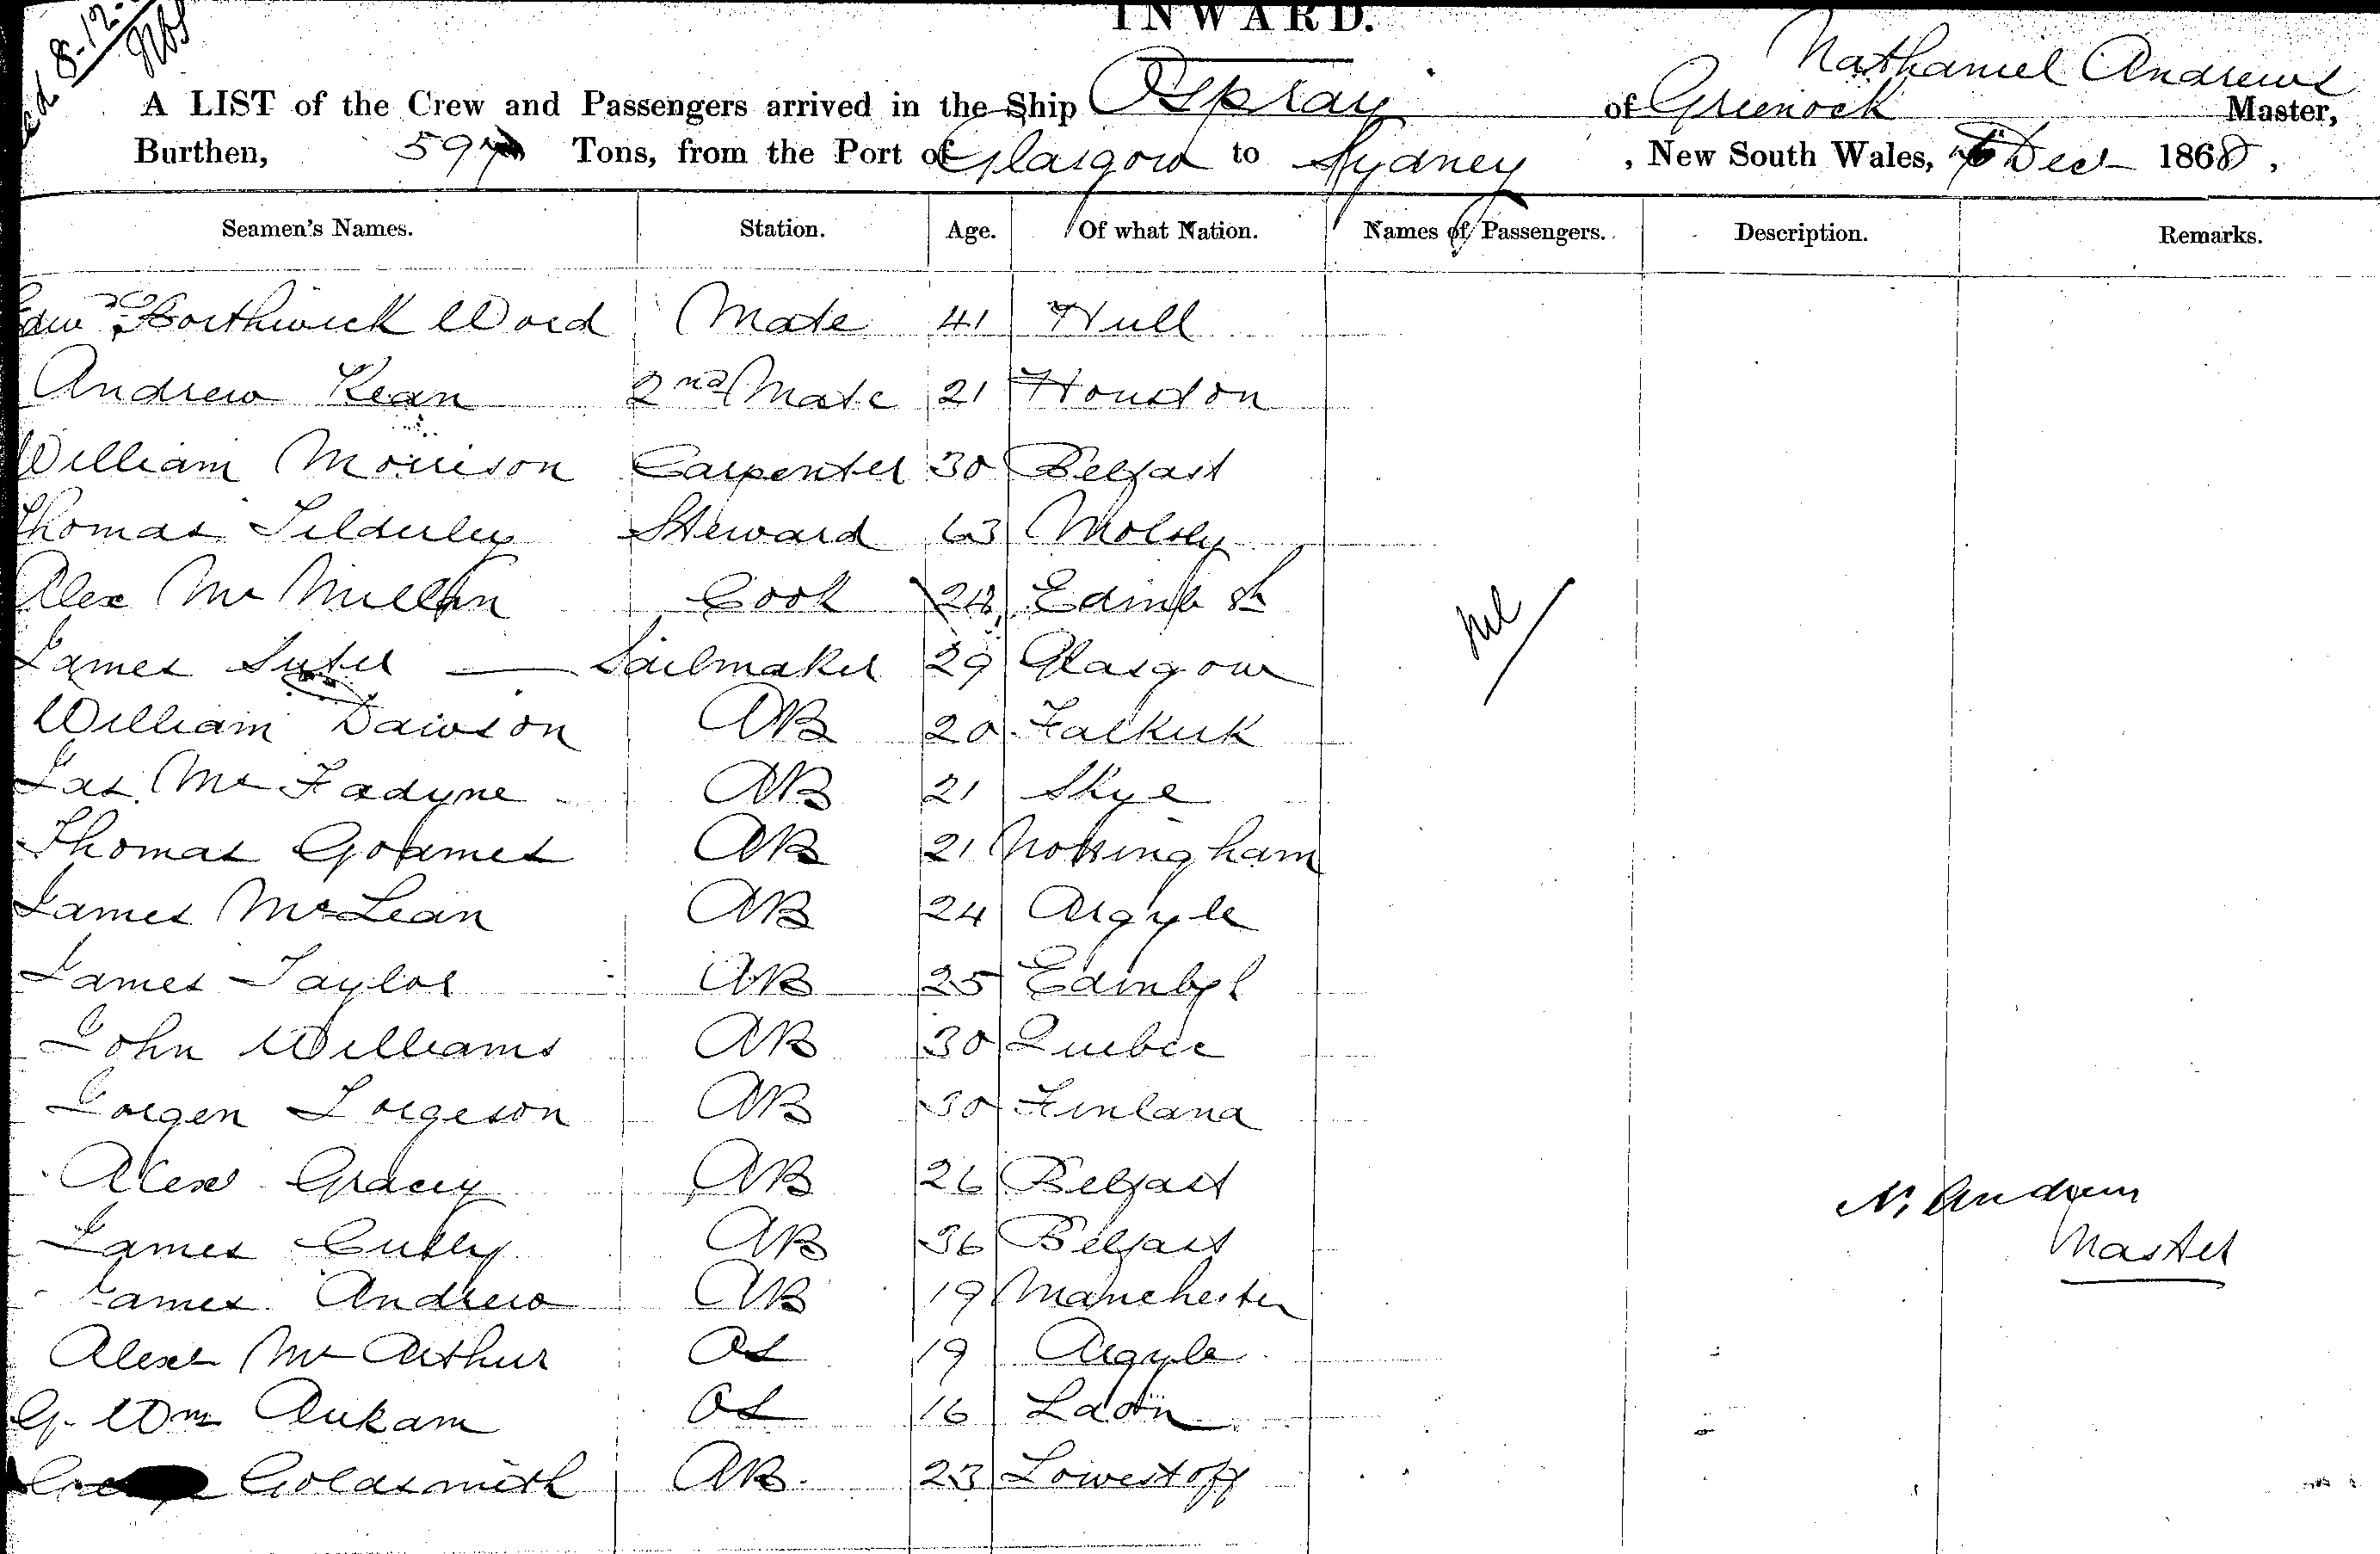 INWARD.
8-12-
Nathaniel Andrews
A LIST of the Crew and Passengers arrived in the Ship Ospray of Greenock Master,
Burthen, 597 Tons, from the Port of Glasgow to Sydney, New South Wales, Decr 1868,
Seamen's Names. Station. Age. Of what Nation. Names of Passengers. Description. Remarks.
Edwd Borthwick Word Mate 41 Hull
Andrew Kean 2nd Mate 21 Houston
William Morrison Carpenter 30 Belfast
Thomas Tilderley Steward 63
Alex Mc Millan Cook Edinb gh
James Suter Sailmaker 29 Glasgow
William Dawson AB 20 Falkirk
Jas. Mc Fadyne AB 21 Skye
Nil
Thomas Goames AB 21 Nottingham
James McLean AB 24 Argyle
James Taylor AB 25 Edinbgh
John Williams AB 30 Quebec
Jorgen Jorgeson AB 30 Finland
Alexr Gracey AB 26 Belfast
N. Andrews
James Cully AB 36 Belfast
Master
James Andrew AB 19 Manchester
Alexr Mc Arthur OS 19 Argyle
G. Wm Aukam OS 16
Goldsmith AB. 23 Lowestoff